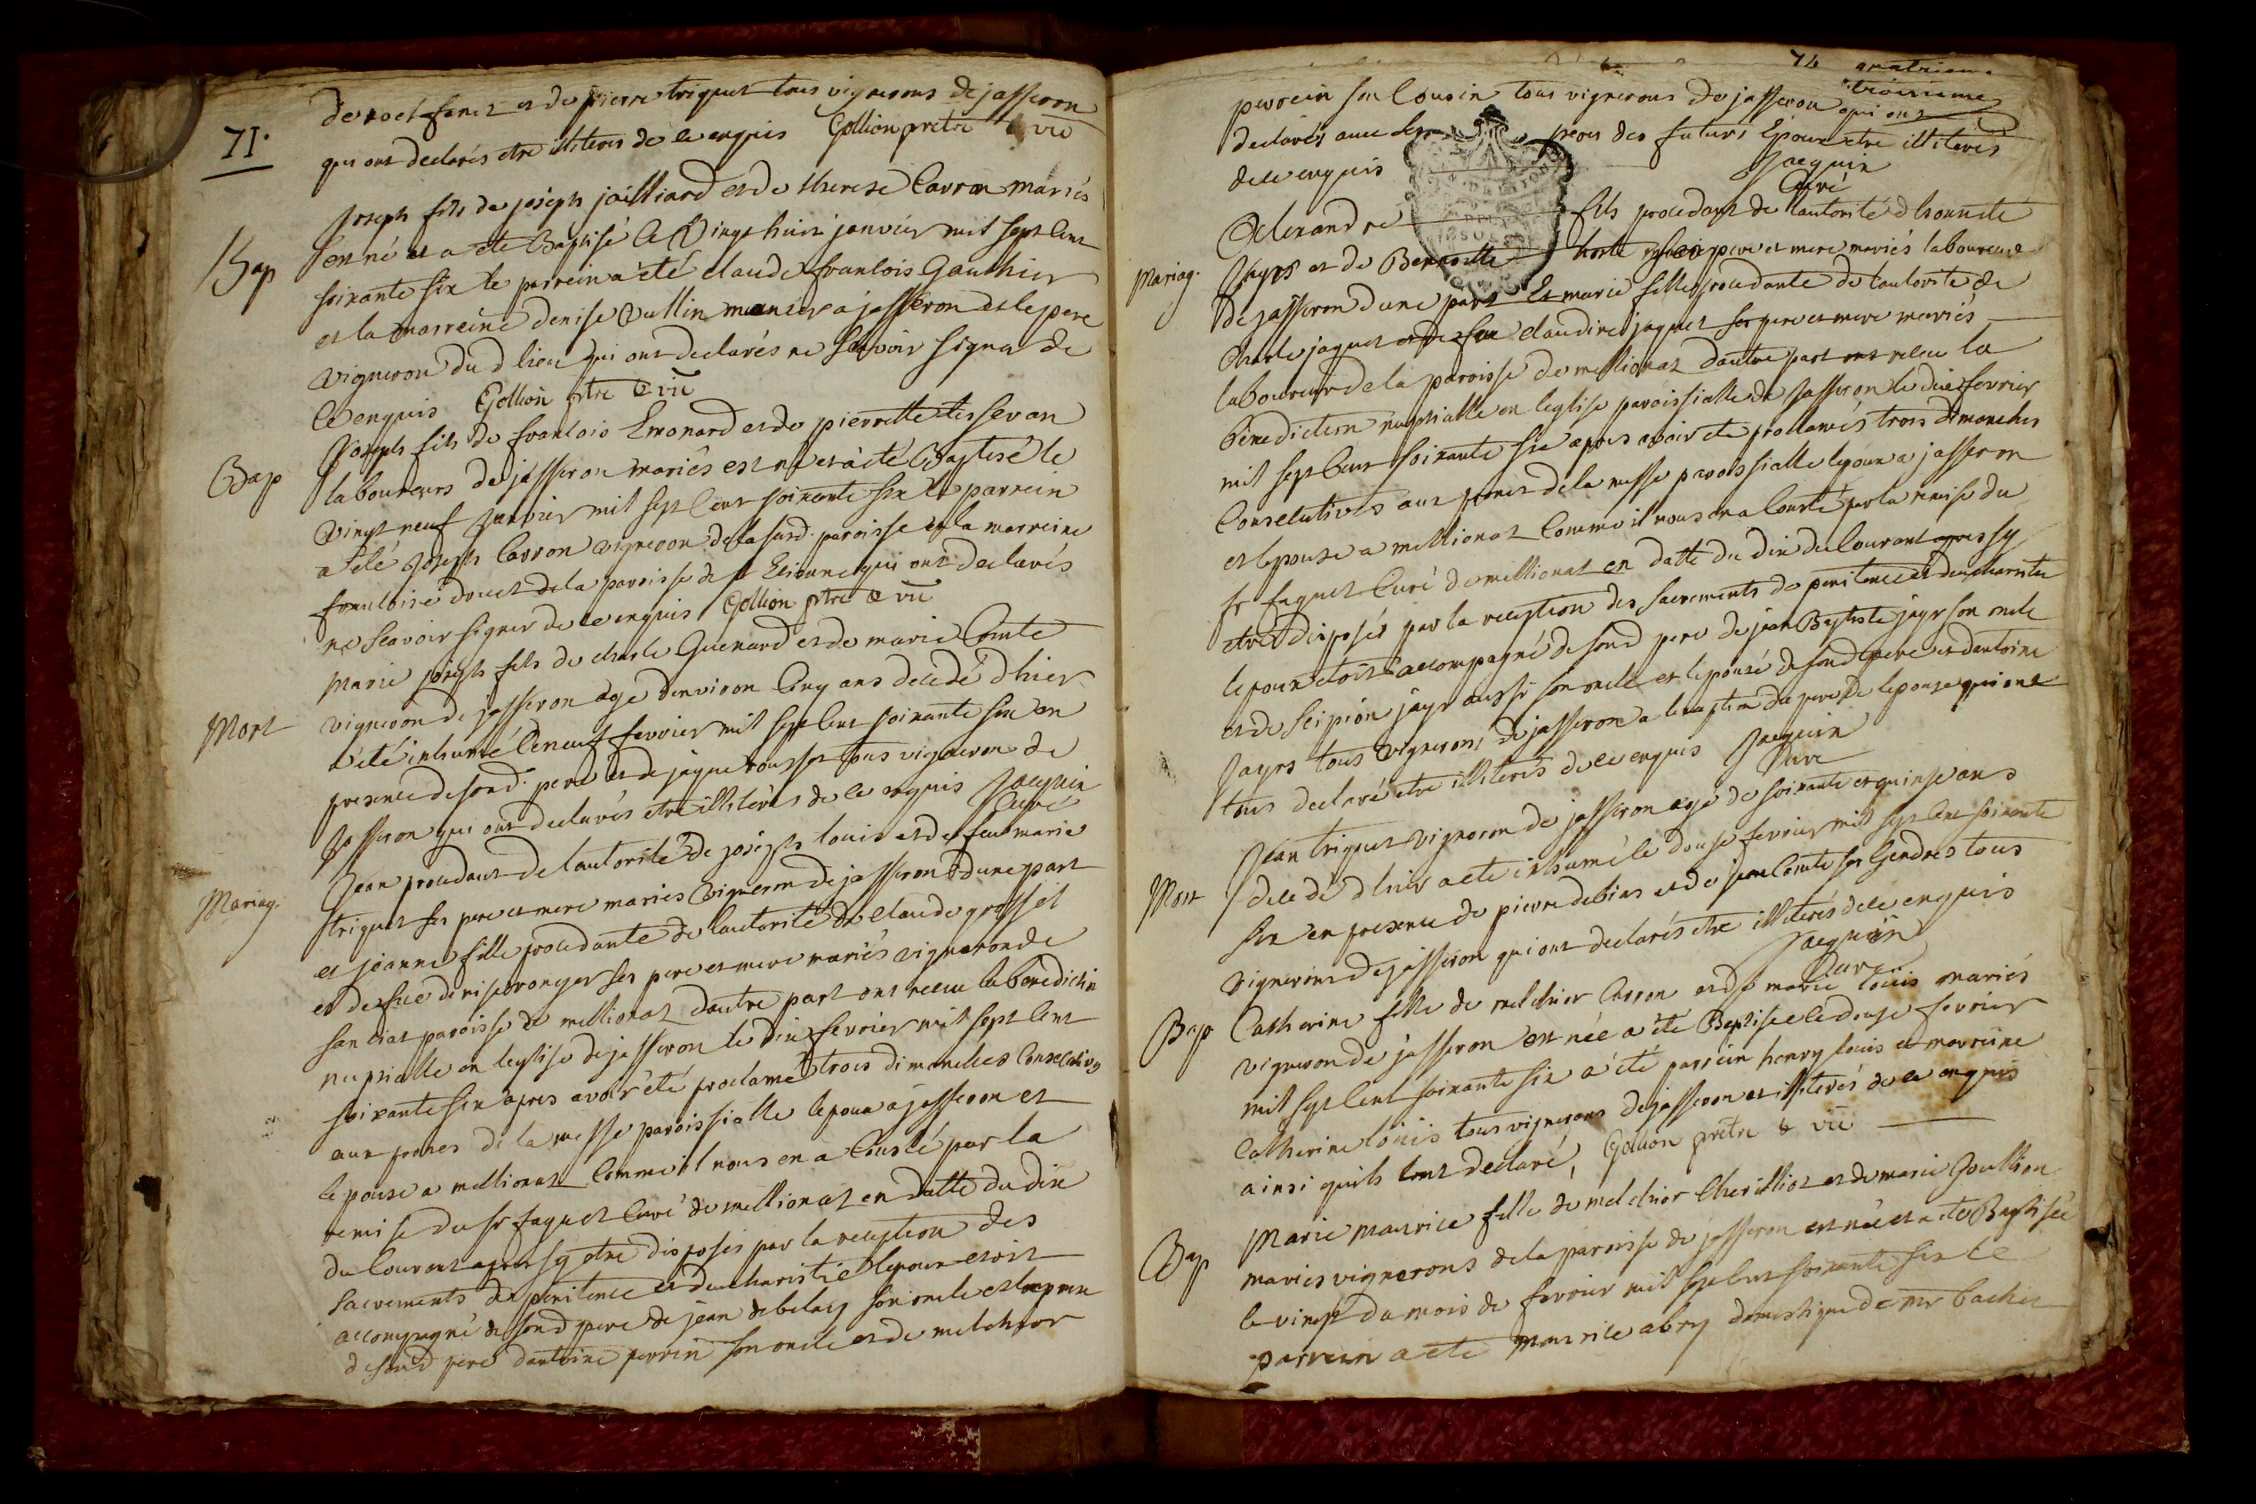 71.
de roet fenet et de pierre triquet tous vignerons de jasseron
qui ont declarés etre illiterés de ce enquis Gollion pretre & vic
Bap
Joseph fils de joseph jailliard et de therese Carron mariés
est né et a eté Baptisé le Vingt huit janvier mil sept cent
soixante six le parrein a été claude francois Gauthier
et la marreine denise Vullin menier a jasseron et le pere
vigneron du d lieu qui ont declarés ne scavoir signer de
ce enquis Gollion ptre & vic
Bap
Joseph fils de francois Emonard et de pierrette tissevan
laboureurs de jasseron mariés est né et a été Baptisé le
vingt neuf janvier mil sept cent soixante six le parrein
a été Joseph Carron vigneron de la susd. paroisse et la marreine
francoise douet de la paroisse de st Etienne qui ont declarés
ne scavoir signer de ce enquis Gollion ptre & vic
Mort
Marie joseph fils de charle Guenard et de marie Comte
vigneron de jasseron agé denviron Cinq ans decedé dhier
a été inhumé le neuf fevrier mil sept cent soixante six en
presence de sond. pere et de jaque rousset tous vigneron de
Jasseron qui ont declarés etre illiterés de ce enquis Jacquin
Curé
Mariag.
Jean procedant de lautorité de joseph louis et de feue marie
triquet ses pere et mere mariés vigneron de jasseron dune part
et jeanne fille procedante de lautorité de claude grosset
et de feue denise ronger ses pere et mere mariés vigneron de
sanciat paroisse de meillonat dautre part ont recu la benediction
nuptialle en leglise de jasseron le dix fevrier mil sept cent
soixante six apres avoir été proclamé trois dimanches Consecutives
aux prones de la messe paroissialle lepoux a jasseron et
lepouse a meillonat Comme il nous en a Consté par la
remise du sr faguet Curé de meillonat en datte du dix
du Courant apres sy etre disposés par la reception des
sacrements de penitence et deucharistie lepoux etoit
accompagné de sond pere de jean debelay son oncle et lepouse
de sond pere dantoine perrin son oncle et de melchior
74
troisieme
perrein son Cousin tous vignerons de jasseron qui ont
declarés avec les peres des futurs Epoux etre illiterés
de ce enquis Jacquin
Curé
Mariag.
Alexandre fils procedant de lautorité dhonneté
Jayr et de Benoitte ses pere et mere mariés laboureur
de jasseron dune part Et marie fille procedante de lautorité de
Charle jaquet et de feue claudine jaquet ses pere et mere mariés
laboureur de la paroisse de meillonat dautre part ont recu la
benediction nuptialle en leglise paroissialle de Jasseron le dix fevrier
mil sept cent soixante six apres avoir été proclamés trois dimanches
Consecutives aux prones de la messe paroissialle lepoux a jasseron
et lepouse a meillonat Comme il nous en a Consté par la remise du
sr faguet Curé de meillonat en datte du dix du Courant apres sy
etre disposés par la reception des sacrements de penitence et deucharistie
lepoux etoit accompagné de sond pere de jean Baptiste jayr son oncle
et de scipion jayr aussi son oncle et lepouse de sond pere et dantoine
Jayr tous vignerons de jasseron a lexception du pere de lepouse qui ont
tous declaré etre illiterés de ce enquis Jacquin
Curé
Mort
Jean triquet vigneron de jasseron agé de soixante et quinse ans
decedé dhier a été inhumé le douse fevrier mil sept cent soixante
six en presence de pierre debias et de jean Comte ses Gendres tous
vignerons de jasseron qui ont declarés etre illiterés de ce enquis
Jacquin
Curé
Bap
Catherine fille de melchior Carron et de marie louis mariés
vigneron de jasseron est née a été Baptisée le douse fevrier
mil sept cent soixante six a été parrein henry louis et marreine
Catherine louis tous vignerons de jasseron et illiterés de ce enquis
ainsi quils lont declaré, Gollion pretre & vic
Bap
Marie maurice fille de melchior Chevilliot et de marie Goullion
mariés vignerons de la paroisse de jasseron est née et a été Baptisée
le vingt du mois de fevrier mil sept cent soixante six le
parrein a été maurice abry domestique de mr bachet